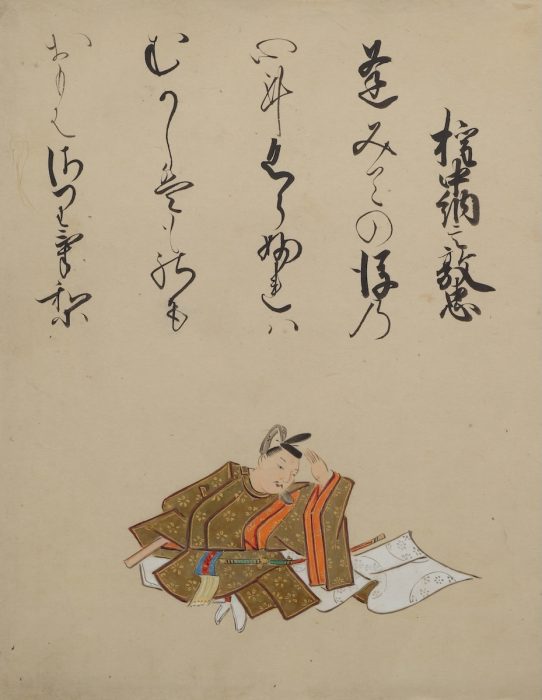 権中納言敦忠
逢みての後乃
心にくらふれハ
むかしはものを
おもはさりけり